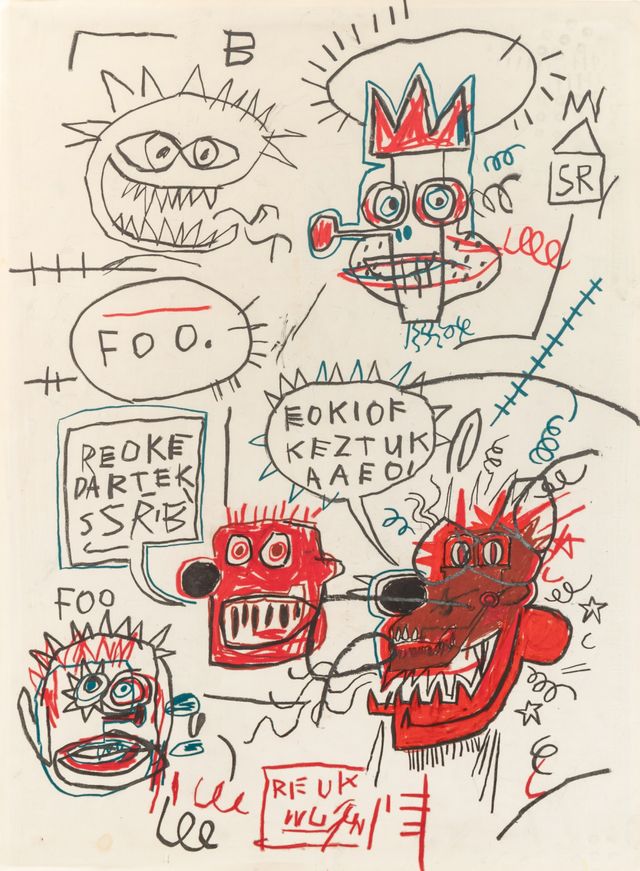 B
SR
FOO.
EOKIOF
KEZTUK
AAEO!
REOKE
DARTEK
SSRIB
FOO
REUK